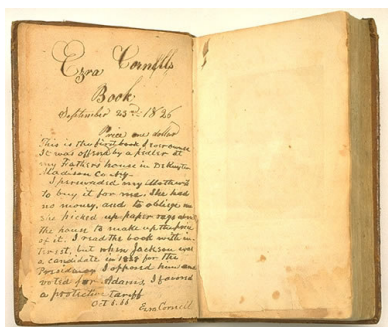 Ezra Cornell's
Book
September 23rd 1826
Price one dollar
This is the first book I ever owned
It was offered by a pedler at
my Fathers house in DeRuyter
Madison County.
I persuaded my Mother
to buy it for me. She had
no money, and to oblige me
she picked up paper rags about
the house to make up the price
of it. I read the book with in-
terest, but when Jackson was
a candidate in 1828 for the
Presidency I opposed him and
voted for Adams, I favored
a protective Tariff
Oct
Ezra Cornell